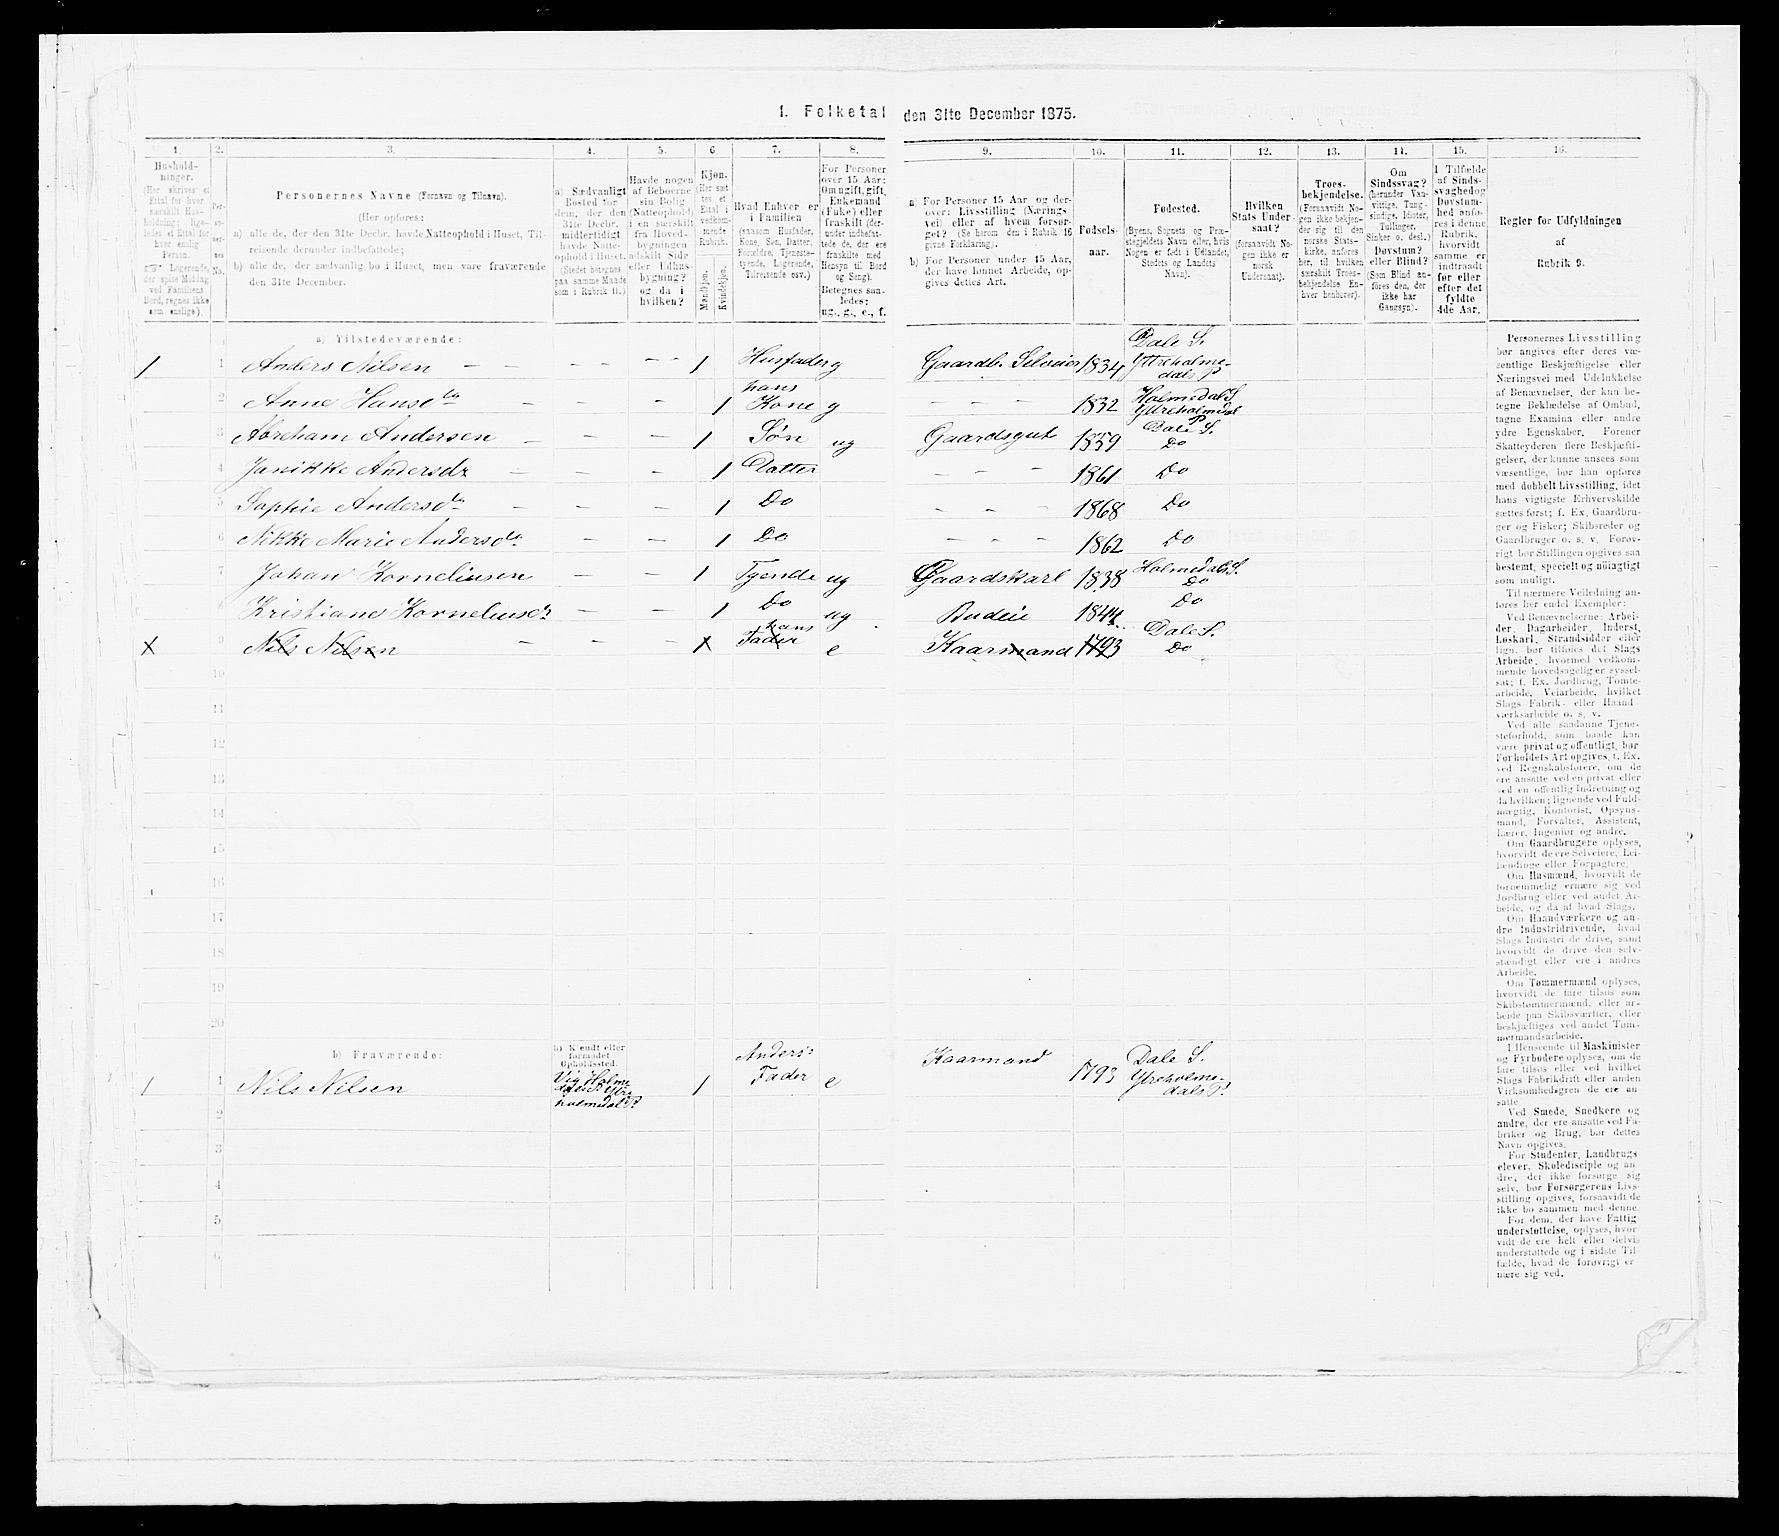 1. Folketal den 31te December 1875.
1. 2. 3. 4. 5. 6. 7. 8. 9. 10. 11. 12. 13. 14. 15. 16.
Hushold-
ninger.
(Her skrives et
Ettal for hver
særskilt Hus-
holdning; lige-
ledes et Ettal for
hver enslig
Person.
Logerende,
der spise Middag
ved Familiens
Bord, regnes ikke
som enslige).
Per-
so-
ner-
nes
No.
Personernes Navne (Fornavn og Tilnavn).
(Her opføres:
a) alle de, der den 31te Decbr. havde Natteophold i Huset, Til-
reisende derunder indbefattede;
b) alle de, der sædvanlig bo i Huset, men vare fraværende
den 31te December.
a) Sædvanligt
Bosted for
dem, der den
31te Decbr.
midlertidigt
havde Natte-
ophold i Huset.
(Stedet betegnes
paa samme Maade
som i Rubrik 11.)
Havde nogen
af Beboerne
sin Bolig
(Natteophold)
i en særskilt
fra Hoved-
bygningen
adskilt Side
eller Udhus-
bygning?
og da i
hvilken?
Kjøn.
(Her sæt-
tes et
Ettal i
vedkom-
mende
Rubrik.
Mandkjøn.
Kvindekjøn.
Hvad Enhver er
i Familien
(saasom Husfader,
Kone, Søn, Datter,
Forældre, Tjeneste-
tyende, Logerende,
Tilreisende osv.)
For Personer
over 15 Aar:
Om ugift, gift,
Enkemand
(Enke) eller
fraskilt (der-
under indbefat-
tede de, der ere
fraskilte med
Hensyn til Bord
og Seng).
Betegnes saa-
ledes:
ug., g., e., f.
a) For Personer 15 Aar og der-
over: Livsstilling (Nærings
vei) eller af hvem forsør-
get? (Se herom den i Rubrik 16
givne Forklaring).
b) For Personer under 15 Aar,
der have lønnet Arbeide, op-
gives dettes Art.
Fødsels-
aar.
Fødested.
(Byens, Sognets og Præ-
stegjeldets Navn eller, hvis
Nogen er født i Udlandet,
Stedets og Landets
Navn).
Hvilken
Stats Under-
saat?
(forsaavidt No-
gen ikke er
norsk
Undersaat).
Troes-
bekjendelse.
(Forsaavidt No-
gen ikke bekjen-
der sig til den
norske Stats-
kirke, anføres
her, til hvilken
særskilt Troes-
bekjendelse En-
hver henhører).
Om
Sindssvag?
(herunder Van-
vittige, Tung-
sindige, Idioter,
Tullinger,
Sinker o. desl.)
Døvstum?
eller Blind?
(Som Blind an-
føres den, der
ikke har
Gangsyn).
I Tilfælde
af Sinds-
svaghed og
Døvstum-
hed anfø-
res i denne
Rubrik,
hvorvidt
samme er
indtraadt
før eller
efter det
fyldte
4de Aar.
Regler for Udfyldningen
af
Rubrik 9.
a) Tilstedeværende:
1 1 Anders Nilsen 1 Husfader g Gaardb. Selveier 1834 Dale S. Yttreholme-dals P
2 Anne Hansdtr 1 hans Kone g 1832 Holmedal S Yttreholmdal P
3 Abreham Andersen 1 Søn ug Gaardsgut 1859 Dale S. Do
4 Janikke Andersdr 1 Datter 1861 Do
5 Sophie Andersdtr 1 Do 1868 Do
6 Nikke Marie Andersdtr 1 Do 1862 Do
7 Johan Korneliusen 1 Tyende ug Gaardskarl 1838 Holmedals S. Do
8 Kristiane Korneliusdr 1 Do ug Budeie 1844 Do
X 9 Nils Nilsen 1 hans Fader e Kaarmand 1793 Dale S. Do
10
11
12
13
14
15
16
17
18
19
20
b) Fraværende:
b) Kjendt eller
formodet
Opholdssted.
1 1 Nils Nilsen 1 Anders's Fader e Kaarmand 1793 Dale S. Ytreholme-dals P.
2
3
4
5
6
Personernes Livsstilling
bør angives efter deres væ-
sentlige Beskjæftigelse eller
Næringsvei med Udelukkelse
af Benævnelser, der kun be-
tegne Beklædelse af Ombud,
tagne Examina eller andre
ydre Egenskaber. Forener
Skatteyderen flere Beskjæfti-
gelser, der kunne ansees som
væsentlige, bør han opføres
med dobbelt Livsstilling, idet
hans vigtigste Erhvervskilde
sættes først; f. Ex. Gaardbru-
ger og Fisker; Skibsreder og
Gaardbruger o. s. v. Forøv-
rigt bør Stillingen opgives saa
bestemt, specielt og nøiagtigt
som muligt.
Til nærmere Veiledning an-
føres her endel Exempler:
Ved Benævnelserne: Arbei-
der, Dagarbeider, Inderst,
Løskarl, Strandsidder eller
lign. bør tilføies det Slags
Arbeide, hvormed vedkom-
mende hovedsagelig er syssel-
sat; f. Ex. Jordbrug, Tomte-
arbeide, Veiarbeide, hvilket
Slags Fabrik- eller Haand-
værksarbeide o. s. v.
Ved alle saadanne Tjene-
steforhold, som baade kan
være privat og offentligt, bør
Forholdets Art opgives, f. Ex.
ved Regnskabsførere, om de
ere ansatte ved en privat eller
ved en offentlig Indretning og
da hvilken; lignende ved Fuld-
mægtig, Kontorist, Opsyns-
mand, Forvalter, Assistent,
Lærer, Ingeniør og andre.
Om Gaardbrugere oplyses,
hvorvidt de ere Selveiere, Lei-
lændinge eller Forpagtere.
Om Husmænd, hvorvidt de
fornemmelig ernære sig ved
Jordbrug eller ved andet Ar-
beide, og da af hvad Slags.
Om Haandværkere og an-
dre Industridrivende, hvad
Slags Industri de drive, samt
hvorvidt de drive den selv-
stændigt eller ere i andres
Arbeide.
Om Tømmermænd oplyses,
hvorvidt de fare tilsøs som
Skibstømmermænd, eller ar-
beide paa Skibsværfter, eller
beskjæftiges ved andet Tøm-
mermandsarbeide.
I Henseende til Maskinister
og Fyrbødere oplyses, om de
fare tilsøs eller ved hvilket
Slags Fabrikdrift eller anden
Virksomhedsgren de ere an-
satte.
Ved Smede, Snedkere og
andre, der ere ansatte ved Fa-
briker og Brug, bør dettes
Navn opgives.
For Studenter, Landbrugs-
elever, Skoledisciple og an-
dre, der ikke forsørge sig
selv, bør Forsørgerens Livs-
stilling opgives, forsaavidt de
ikke bo sammen med denne.
For dem, der have Fattig-
understøttelse, oplyses, hvor-
vidt de ere helt eller delvis
understøttede og i sidste Til-
fælde, hvad de forøvrigt er-
nære sig ved.